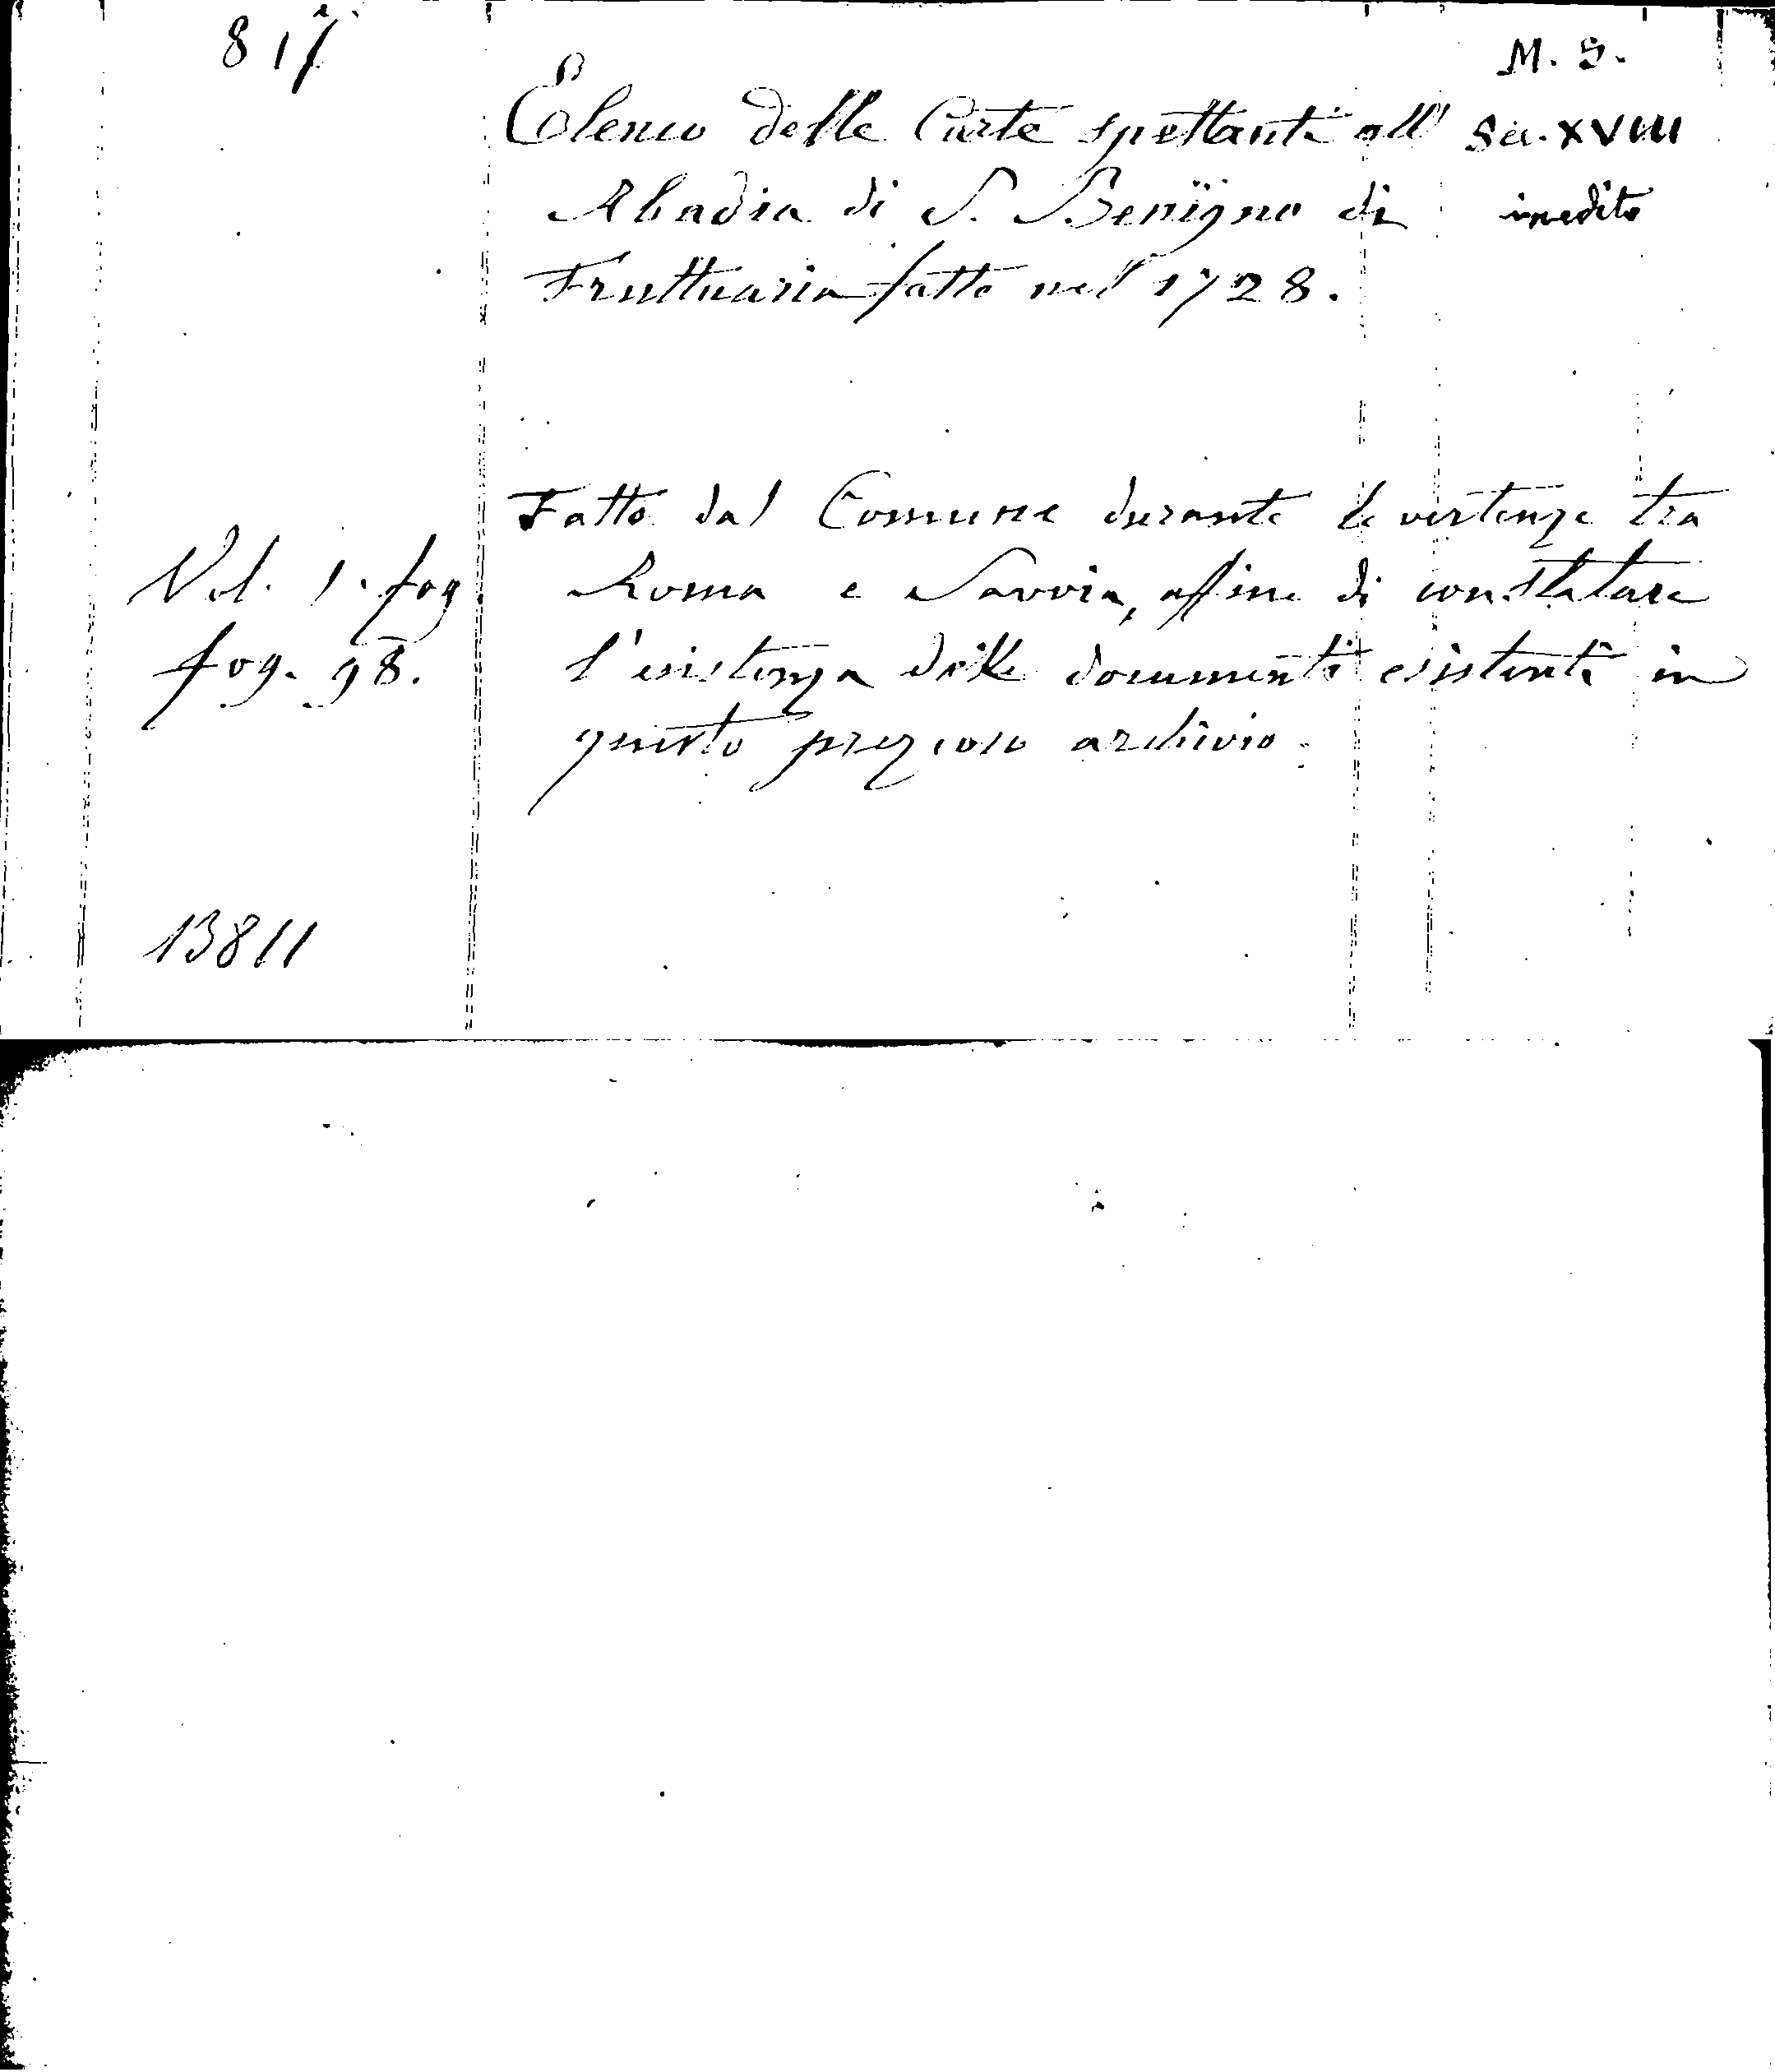 817
M. S.
Elenco delle Carte spettanti all'
Abadia di S. Benigno di
Fruttuaria fatto nel 1728.
Sec. XVIII
inedito
Fatto dal Comune durante le vertenze tra
Roma e Savoia, affine di constatare
l'esistenza delle documenti esistenti in
questo prezioso archivio.
Vol. 1. fog.
fog. 98.
13811